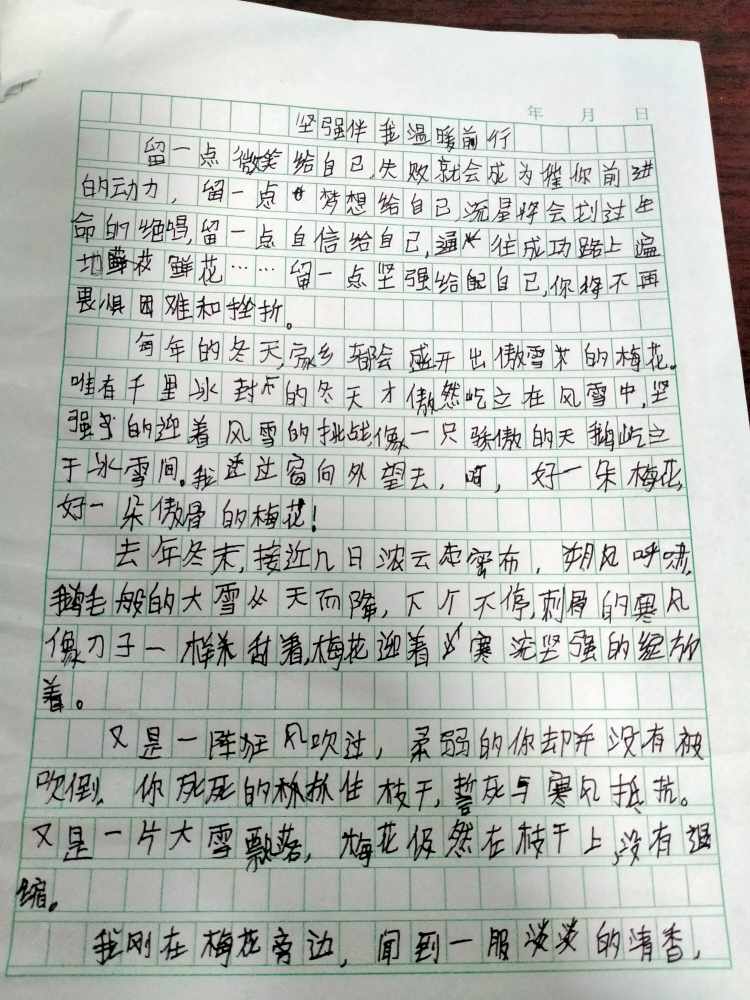 年 月 日
坚强伴我温暖前行
留一点微笑给自己,失败就会成为推你前进
的动力,留一点梦想给自己,流星将会划过生
命的绝唱,留一点自信给自己,通往成功路上遍
地鲜花……留一点坚强给自己,你将不再
畏惧困难和挫折。
每年的冬天,家乡都会盛开出傲雪的梅花。
唯有千里冰封的冬天才傲然屹立在风雪中,坚
强的迎着风雪的挑战,像一只骄傲的天鹅屹立
于冰雪间。我透过窗向外望去,啊,好一朵梅花,
好一朵傲骨的梅花!
去年冬末,接近几日浓云密布,朔风呼啸,
鹅毛般的大雪从天而降,下个不停,刺骨的寒风
像刀子一样刮着,梅花迎着寒流坚强的绽放
着。
又是一阵狂风吹过,柔弱的你却并没有被
吹倒,你死死的抓住枝干,誓死与寒风抵抗。
又是一片大雪飘落,梅花仍然在枝干上,没有退
缩。
我刚在梅花旁边,闻到一股淡淡的清香,